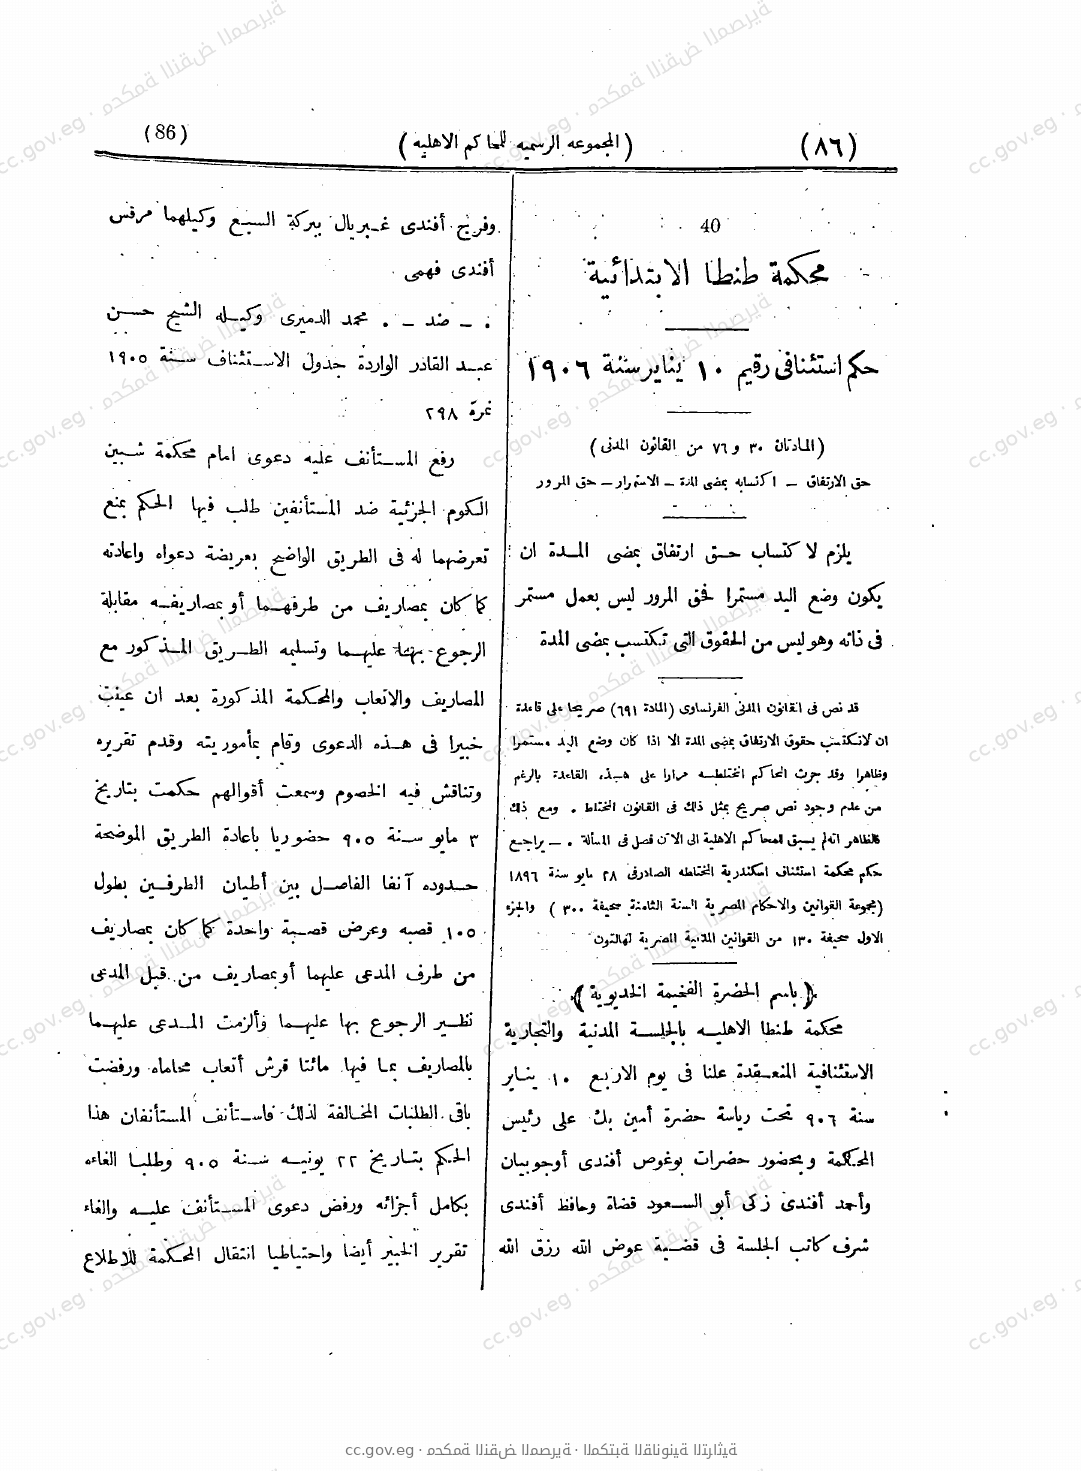 (٨٦)
(المجموعه الرسميه للمحاكم الاهليه)
(86)
40
محكمة طنطا الابتدائية
حكم استئنافى رقيم ١٠ يناير سنة ١٩٠٦
(المادتان ٣٠ و ٧٦ من القانون المدنى)
حق الارتفاق – اكتسابه بمضى المدة – الاستمرار – حق المرور
يلزم لاكتساب حق ارتفاق بمضى المدة ان
يكون وضع اليد مستمرا فحق المرور ليس بعمل مستمر
فى ذاته وهو ليس من الحقوق التى تكتسب بمضى المدة
قد نص فى القانون المدنى الفرنساوى (المادة ٦٩١) صريحا على قاعدة
ان لاتكتسب حقوق الارتفاق بمضى المدة الا اذا كان وضع اليد مستمرا
وظاهرا وقد جرت المحاكم المختلطه مرارا على هذه القاعدة بالرغم
من عدم وجود نص صريح بمثل ذلك فى القانون المختلط . ومع ذلك
فالظاهر انه لم يسبق للمحاكم الاهلية الى الآن فصل فى المسألة . – يراجع
حكم محكمة استئناف اسكندرية المختلطه الصادر فى ٢٨ مايو سنة ١٨٩٦
(مجموعة القوانين والاحكام المصرية السنة الثامنة صحيفة ٣٠٠) والجزء
الاول صحيفة ١٣٠ من القوانين المدنية المصرية لهالتون
(باسم الحضرة الفخيمة الخديوية)
محكمة طنطا الاهليه بالجلسة المدنية والتجارية
الاستئنافية المنعقدة علنا فى يوم الاربع ١٠ يناير
سنة ٩٠٦ تحت رياسة حضرة أمين بك على رئيس
المحكمة وبحضور حضرات بوغوص أفندى أوجوبيان
وأحمد أفندى زكى أبو السعود قضاة وحافظ أفندى
شرف كاتب الجلسة فى قضية عوض الله رزق الله
وفريج أفندى غبريال ببركة السبع وكيلهما مرقس
أفندى فهمى
. – ضد – . محمد الدميرى وكيله الشيخ حسن
عبد القادر الواردة جدول الاستئناف سنة ١٩٠٥
نمرة ٢٩٨
رفع المستأنف عليه دعوى امام محكمة شبين
الكوم الجزئية ضد المستأنفين طلب فيها الحكم بمنع
تعرضهما له فى الطريق الواضح بعريضة دعواه واعادته
كما كان بمصاريف من طرفهما أو بمصاريفه مقابلة
الرجوع بها عليهما وتسليمه الطريق المذكور مع
المصاريف والاتعاب والمحكمة المذكورة بعد ان عينت
خبيرا فى هذه الدعوى وقام بمأموريته وقدم تقريره
وتناقش فيه الخصوم وسمعت أقوالهم حكمت بتاريخ
٣ مايو سنة ٩٠٥ حضوريا باعادة الطريق الموضحة
حدوده آنفا الفاصل بين أطيان الطرفين بطول
١٠٥ قصبه وعرض قصبة واحدة كما كان بمصاريف
من طرف المدعى عليهما أو بمصاريف من قبل المدعى
نظير الرجوع بها عليهما وألزمت المدعى عليهما
بالمصاريف بما فيها مائتا قرش أتعاب محاماه ورفضت
باقى الطلبات المخالفة لذلك فاستأنف المستأنفان هذا
الحكم بتاريخ ٢٢ يونيه سنة ٩٠٥ وطلبا الغاءه
بكامل أجزائه ورفض دعوى المستأنف عليه والغاء
تقرير الخبير أيضا واحتياطيا انتقال المحكمة للاطلاع
cc.gov.eg · محكمة النقض المصرية · المكتبة القانونية التراثية